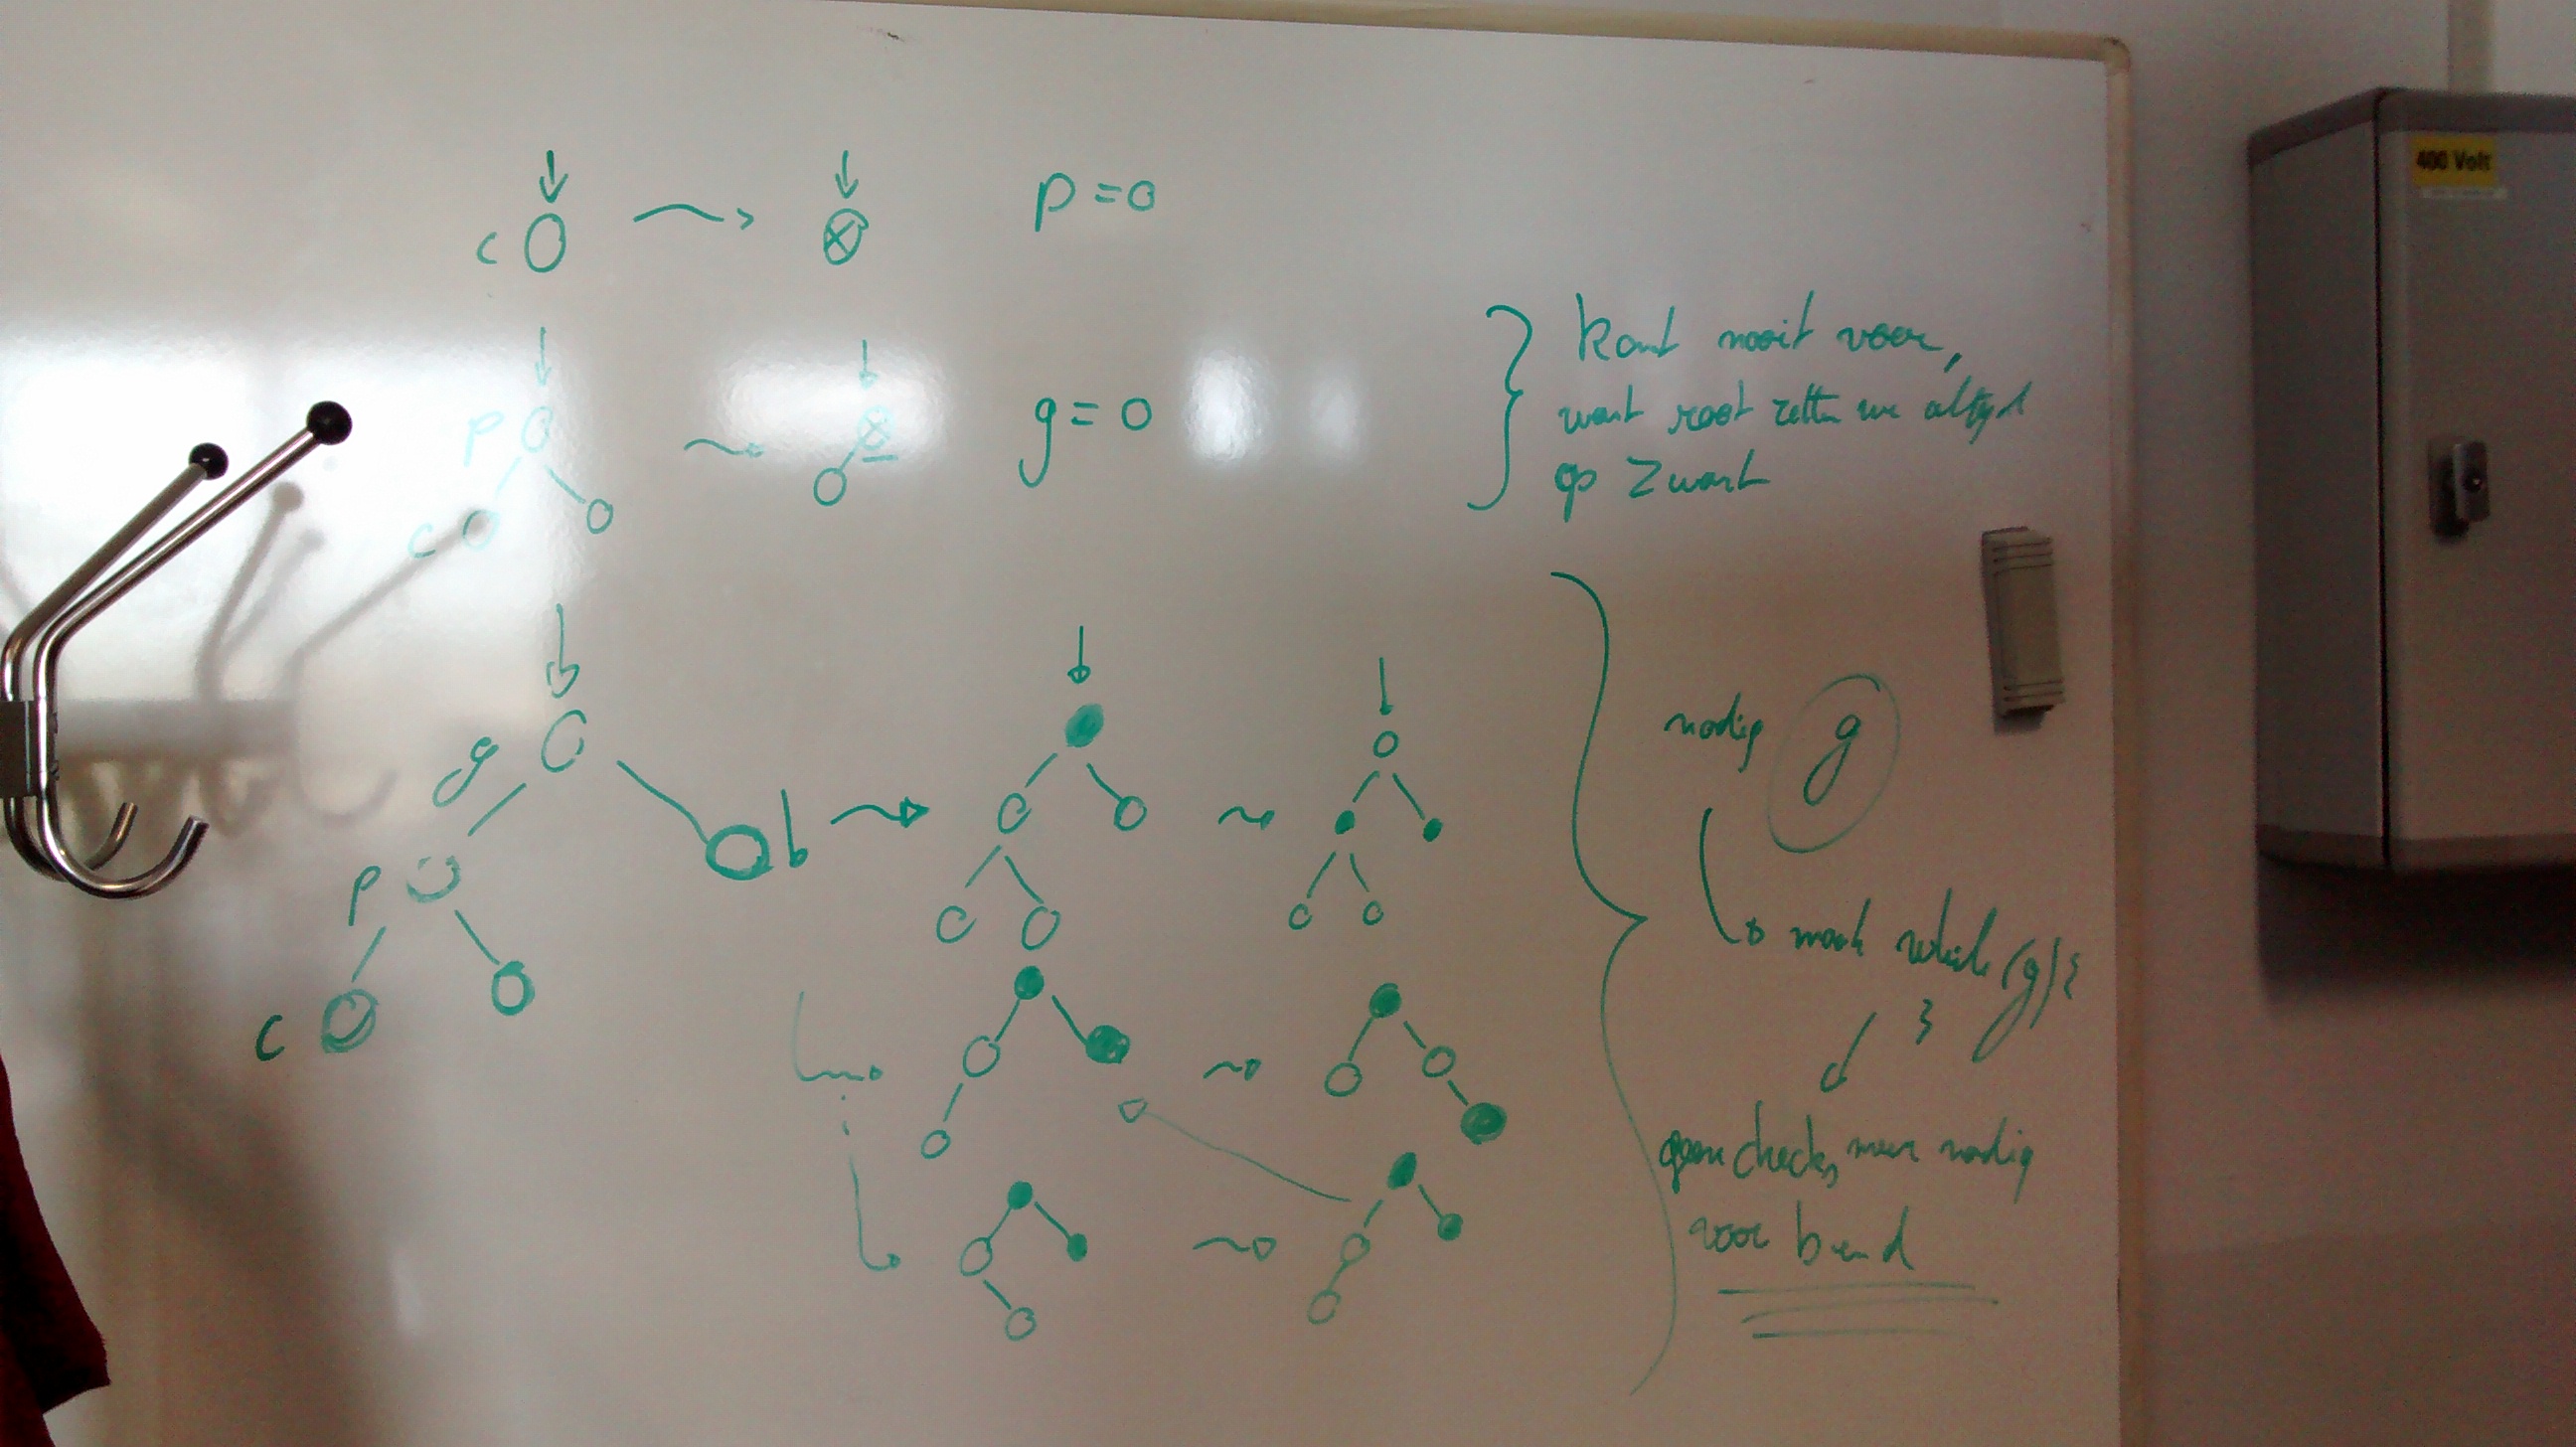 400 Volt
c
p = 0
p
c
g = 0
komt nooit voor,
want root zetten we altijd
op zwart
g
b
p
c
nodig g
maak while (g) {
}
geen checks meer nodig
voor b en d